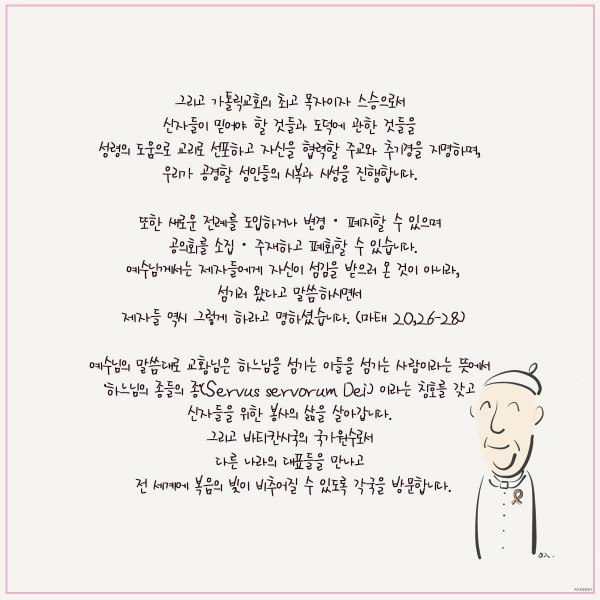 그리고 가톨릭교회의 최고 목자이자 스승으로서
신자들이 믿어야 할 것들과 도덕에 관한 것들을
성령의 도움으로 교리로 선포하고 자신을 협력할 주교와 추기경을 지명하며,
우리가 공경할 성인들의 시복과 시성을 진행합니다.
또한 새로운 전례를 도입하거나 변경 · 폐지할 수 있으며
공의회를 소집 · 주재하고 폐회할 수 있습니다.
예수님께서는 제자들에게 자신이 섬김을 받으러 온 것이 아니라,
섬기러 왔다고 말씀하시면서
제자들 역시 그렇게 하라고 명하셨습니다. (마태 20,26-28)
예수님의 말씀대로 교황님은 하느님을 섬기는 이들을 섬기는 사람이라는 뜻에서
'하느님의 종들의 종'(Servus servorum Dei) 이라는 칭호를 갖고
신자들을 위한 봉사의 삶을 살아갑니다.
그리고 바티칸시국의 국가원수로서
다른 나라의 대표들을 만나고
전 세계에 복음의 빛이 비추어질 수 있도록 각국을 방문합니다.